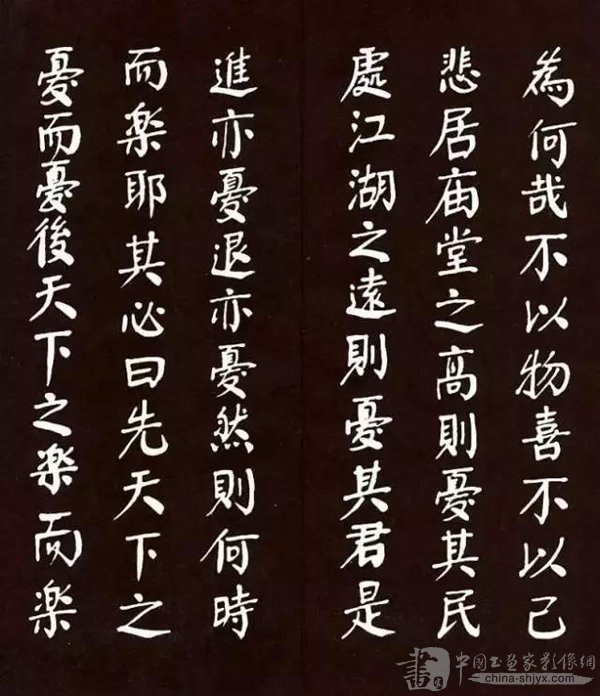 為何哉不以物喜不以己
悲居庙堂之高則憂其民
處江湖之遠則憂其君是
進亦憂退亦憂然則何時
而楽耶其必曰先天下之
憂而憂後天下之楽而楽
書 中国书画家影像網
china-shjyx.com